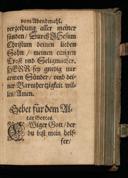 vom Abendmahl.
verzeihung aller meiner
sünden / Durch JEsum
Christum deinen lieben
Sohn / meinen einigen
Trost und Seligmacher.
HERR sey gnedig mir
armen Sünder / umb dei-
ner Barmhertzigkeit wil-
len / Amen.
Gebet für dem Al-
tar Gottes.
Ewiger Gott / der
du bist mein helf-
fer /